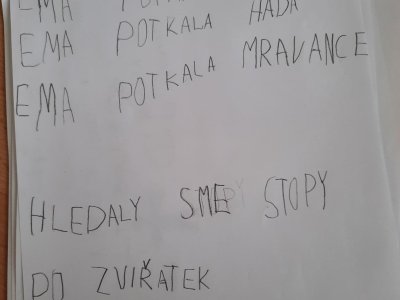 EMA POTKALA HADA
EMA POTKALA
EMA POTKALA MRAVANCE
HLEDALY SME STOPY
PO ZVIŘATEK